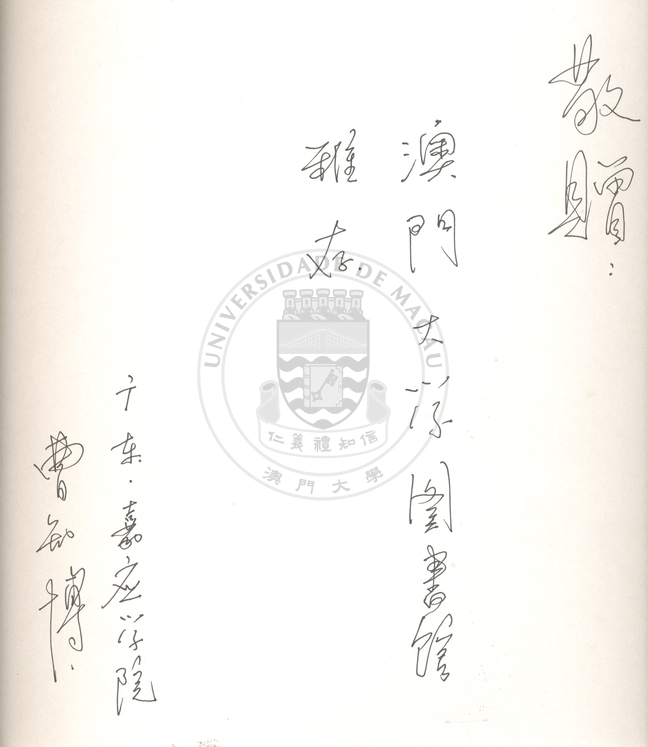 敬贈：
澳門大学图書館
雅存.
广东·嘉应学院
曹知博.
UNIVERSIDADE DE MACAU
仁義禮知信
澳門大學